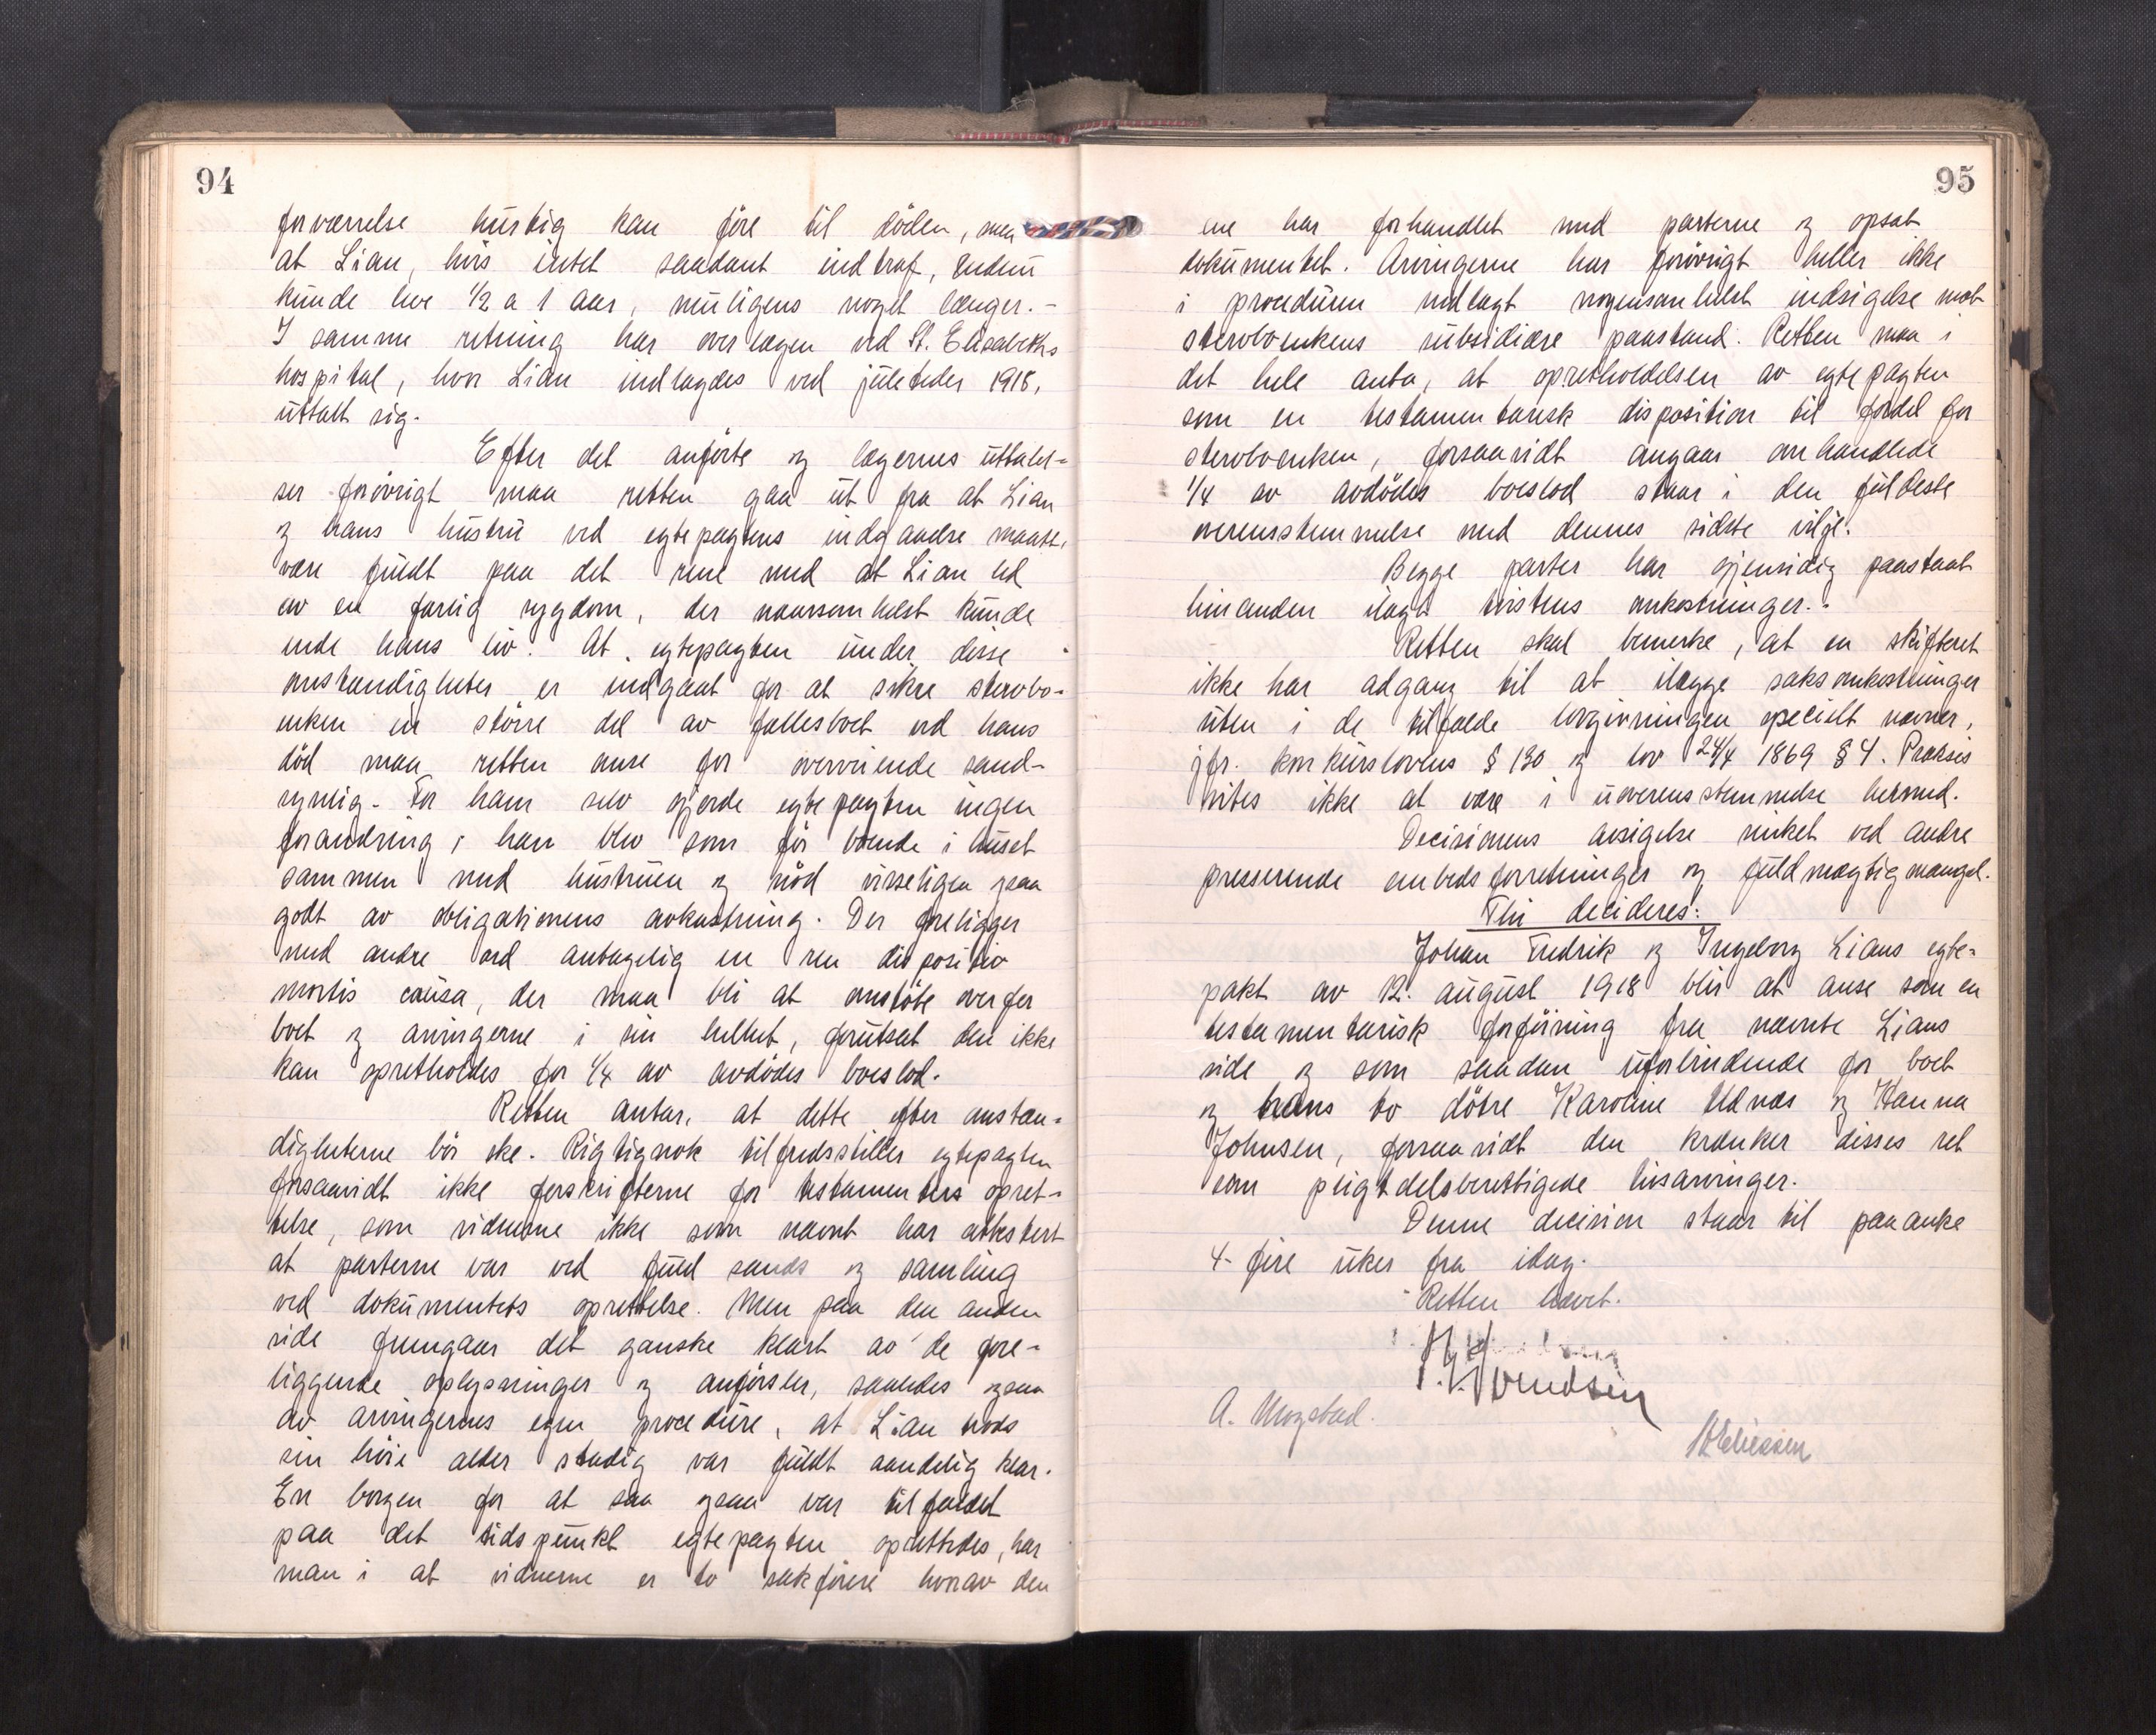 94
forværrelse hurtig kan före til döden, men
at Lian, hvis intet saadant indtraf, endnu
kunde leve 1/2 a 1 aar, muligens noget længer. -
I samme retning har overlægen ved St. Elisabeths
hospital, hvor Lian indlagdes ved juletider 1918,
uttalt sig.
Efter det anförte og lægernes uttalel-
ser forövrigt maa retten gaa ut fra at Lian
og hans hustru ved egtepagtens indgaaelse maatte
være fuldt paa det rene med at Lian led
av en farlig sygdom, der naarsomhelst kunde
ende hans liv. At egtepagten under disse
omstændigheter er indgaat for at sikre stervbo-
enken en större del av fællesboet ved hans
död maa retten anse for overveiende sand-
synlig. For ham selv gjorde egtepagten ingen
forandring; han blev som för boende i huset
sammen med hustruen og nöd visseligen ogsaa
godt av obligationens avkastning. Der foreligger
med andre ord antagelig en ren dispositiv
mortis causa, der maa bli at omstöte overfor
boet og arvingerne i sin helhet, forutsat den ikke
kan opretholdes for 1/4 av avdödes boeslod.
Retten antar, at dette efter omstæn-
dighterne bör ske. Rigtignok tilfredsstiller egtepagten
forsaavidt ikke forskrifterne for testamenters opret-
telse, som vidnerne ikke som nævnt har attestert
at parterne var ved fuld sands og samling
ved dokumentets oprettelse. Men paa den anden
side fremgaar det ganske klart av de fore-
liggende oplysninger og anförsler, saaledes ogsaa
av arvingernes egen procedure, at Lian trods
sin höie alder stadig var fuldt aandelig klar.
En borgen for at saa ogsaa var tilfældet
paa det tidspunkt egtepagten oprettedes, har
man i at vidnerne er to sakförere hvorav den
95
ene har forhandlet med parterne og opsat
dokumentet. Arvingerne har forövrigt heller ikke
i proceduren nedlagt nogensomhelst indsigelse mot
stervboenkens subsidiære paastand. Retten maa i
det hele anta, at opretholdelsen av egtepagten
som en testamentarisk disposition til fordel for
stervboenken, forsaavidt angaar omhandlede
1/4 av avdödes boeslod staar i den fuldeste
overensstemmelse med dennes sidste vilje.
Begge parter har gjensidig paastaat
hinanden ilagt tvistens omkostninger. -
Retten skal bemerke, at en skifteret
ikke har adgang til at ilægge saksomkostninger
uten i de tilfælde lovgivningen specielt nævner,
jfr. konkurslovens § 130 og lov 24/4 1869 § 4. Praksis
vites ikke at være i uoverensstemmelse hermed.
Decisionens avsigelse sinket ved andre
presserende embedsforretninger og fuldmægtigmangel.
Thi decideres:
Johan Fredrik og Ingeborg Lians egte-
pakt av 12. august 1918 blir at anse som en
testamentarisk forföining fra nævnte Lians
side og som saadan uforbindende for boet
og hans to döbre Karoline Udnæs og Hanna
Johnsen, forsaavidt den krænker disses ret
som pligtdelsberettigede livsarvinger.
Denne decision staar til paaanke
4 - fire uker fra idag.
Retten hævet.
A. Mogstad.